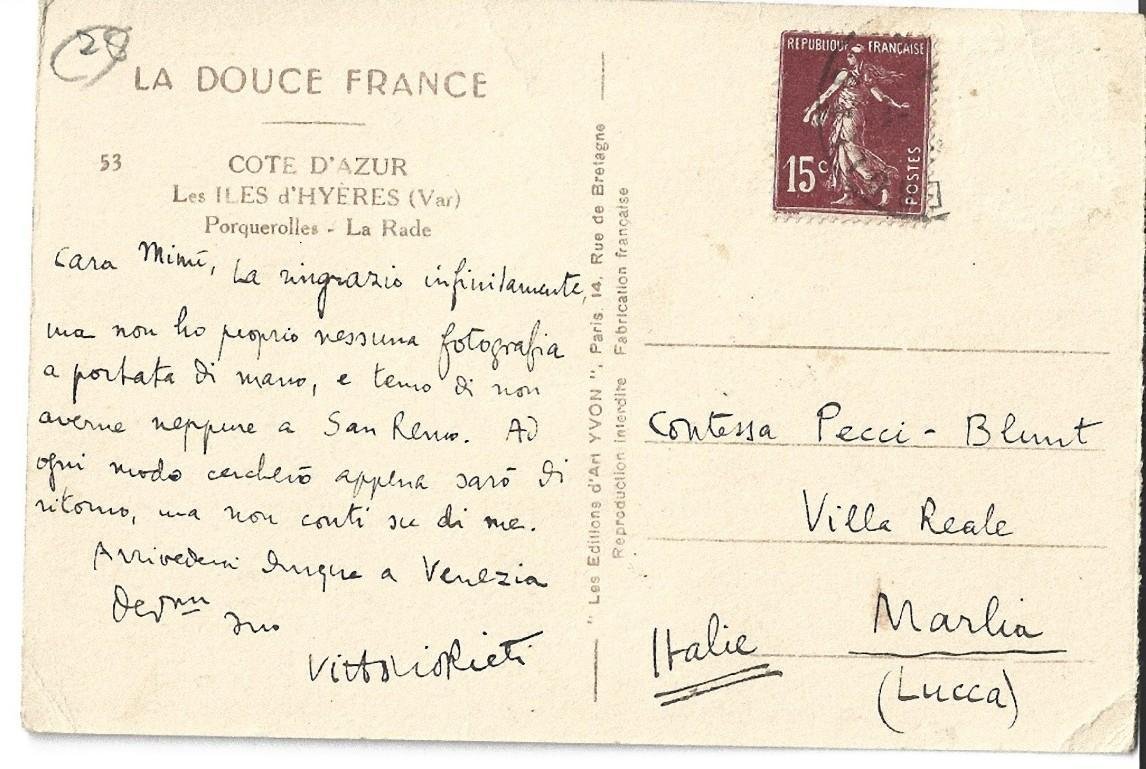 28
LA DOUCE FRANCE
53
COTE D'AZUR
Les ILES d'HYÈRES (Var)
Porquerolles - La Rade
Cara Mimì, La ringrazio infinitamente,
ma non ho proprio nessuna fotografia
a portata di mano, e temo di non
averne neppure a San Remo. Ad
ogni modo cercherò appena sarò di
ritorno, ma non conti su di me.
Arrivederci dunque a Venezia
dev.mo suo
Vittorio Rieti
" Les Editions d'Art YVON ", Paris. 14, Rue de Bretagne
Reproduction interdite Fabrication française
REPUBLIQUE FRANÇAISE
15c
POSTES
Contessa Pecci - Blunt
Villa Reale
Marlia
(Lucca)
Italie